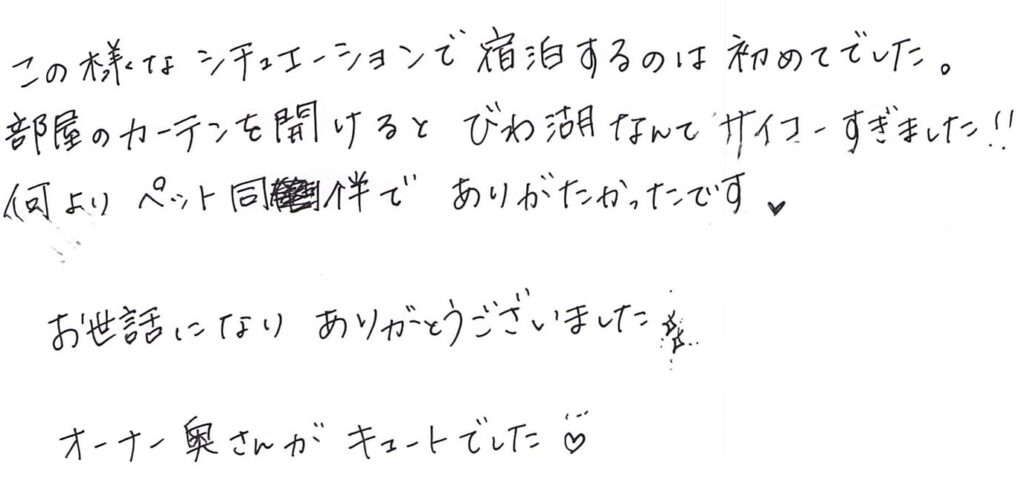 この様なシチュエーションで宿泊するのは初めてでした。
部屋のカーテンを開けるとびわ湖なんてサイコーすぎました!!
何よりペット同伴でありがたかったです♥
お世話になりありがとうございました
オーナー奥さんがキュートでした♡